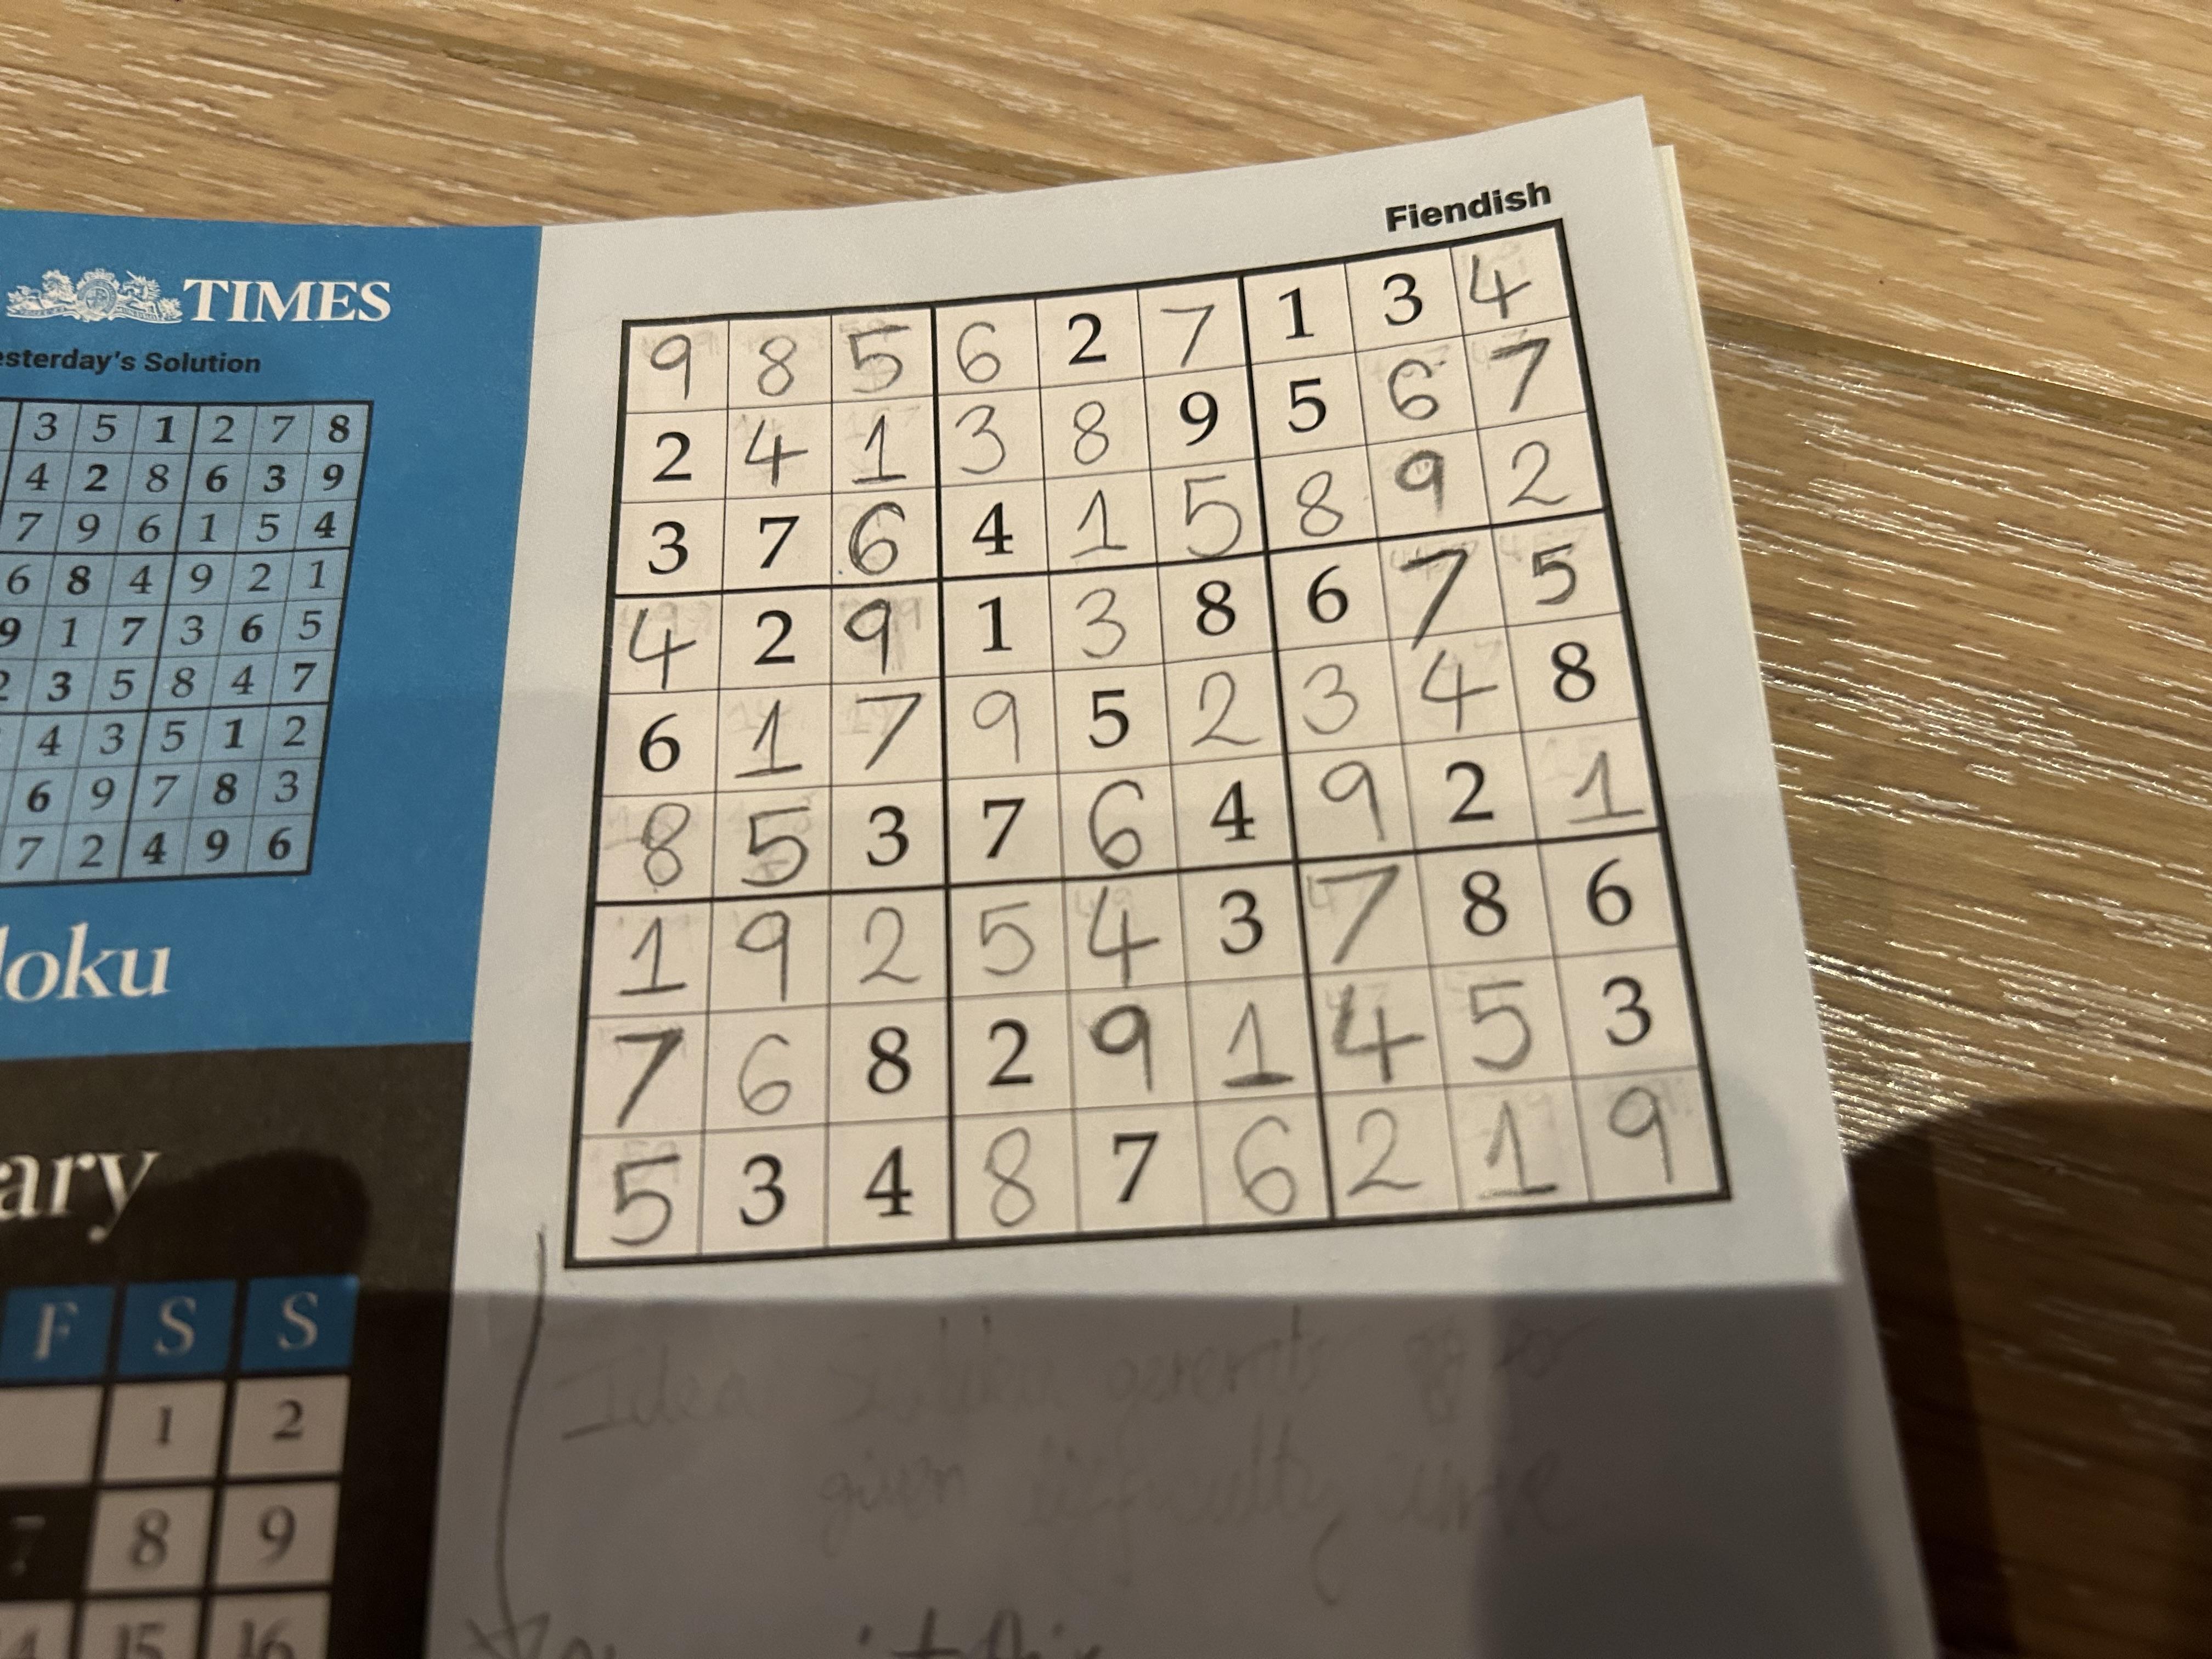 Fiendish
TIMES
esterday's Solution
3 5 1 2 7 8
4 2 8 6 3 9
7 9 6 1 5 4
6 8 4 9 2 1
9 1 7 3 6 5
2 3 5 8 4 7
4 3 5 1 2
6 9 7 8 3
7 2 4 9 6
doku
ary
F S S
1 2
7 8 9
14 15 16
9 8 5 6 2 7 1 3 4
2 4 1 3 8 9 5 6 7
3 7 6 4 1 5 8 9 2
4 2 9 1 3 8 6 7 5
6 1 7 9 5 2 3 4 8
8 5 3 7 6 4 9 2 1
1 9 2 5 4 3 7 8 6
7 6 8 2 9 1 4 5 3
5 3 4 8 7 6 2 1 9
Idea
given difficulty